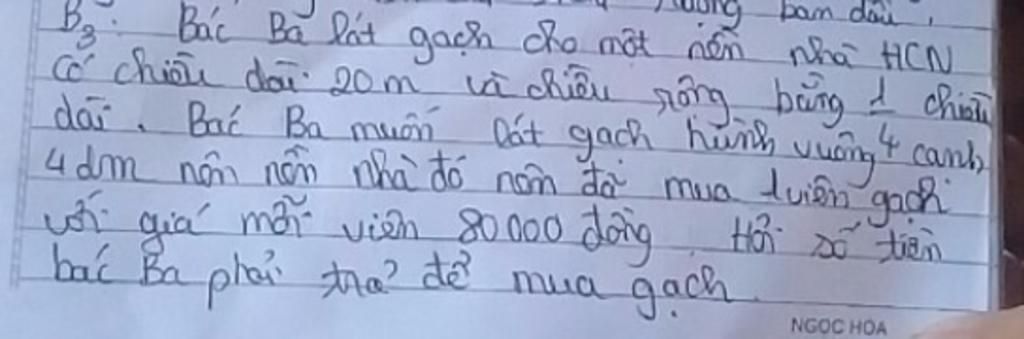 ban đầu,
B3: Bác Ba lát gạch cho một nền nhà HCN
có chiều dài 20m và chiều rộng bằng 1/4 chiều
dài. Bác Ba muốn lát gạch hình vuông cạnh
4dm nên nền nhà đó nên đã mua 1 viên gạch
với giá mỗi viên 80000 đồng. Hỏi số tiền
bác Ba phải trả để mua gạch.
NGỌC HOA